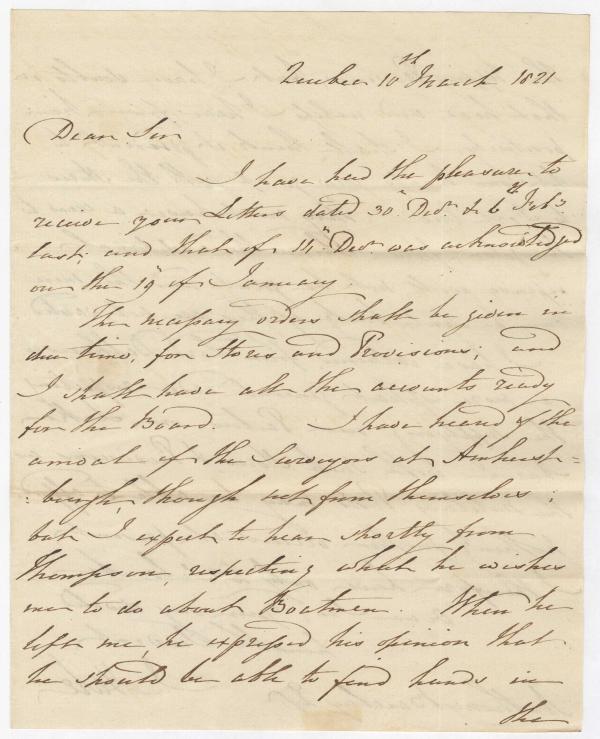 Quebec 10th March 1821
Dear Sir
I have had the pleasure to
receive your Letters dated 30th Decr. & 6th Feby.
last; and that of 14th Decr. was acknowledged
on the 19th of January.
The necessary orders shall be given in
due time, for Stores and Provisions; and
I shall have all the accounts ready
for the Board. I have heard of the
arrival of the Surveyors at Amherst=
=burgh, though not from themselves;
but I expect to hear shortly from
Thompson, respecting what he wishes
me to do about Boatmen. When he
left me, he expressed his opinion that
he should be able to find hands in
the